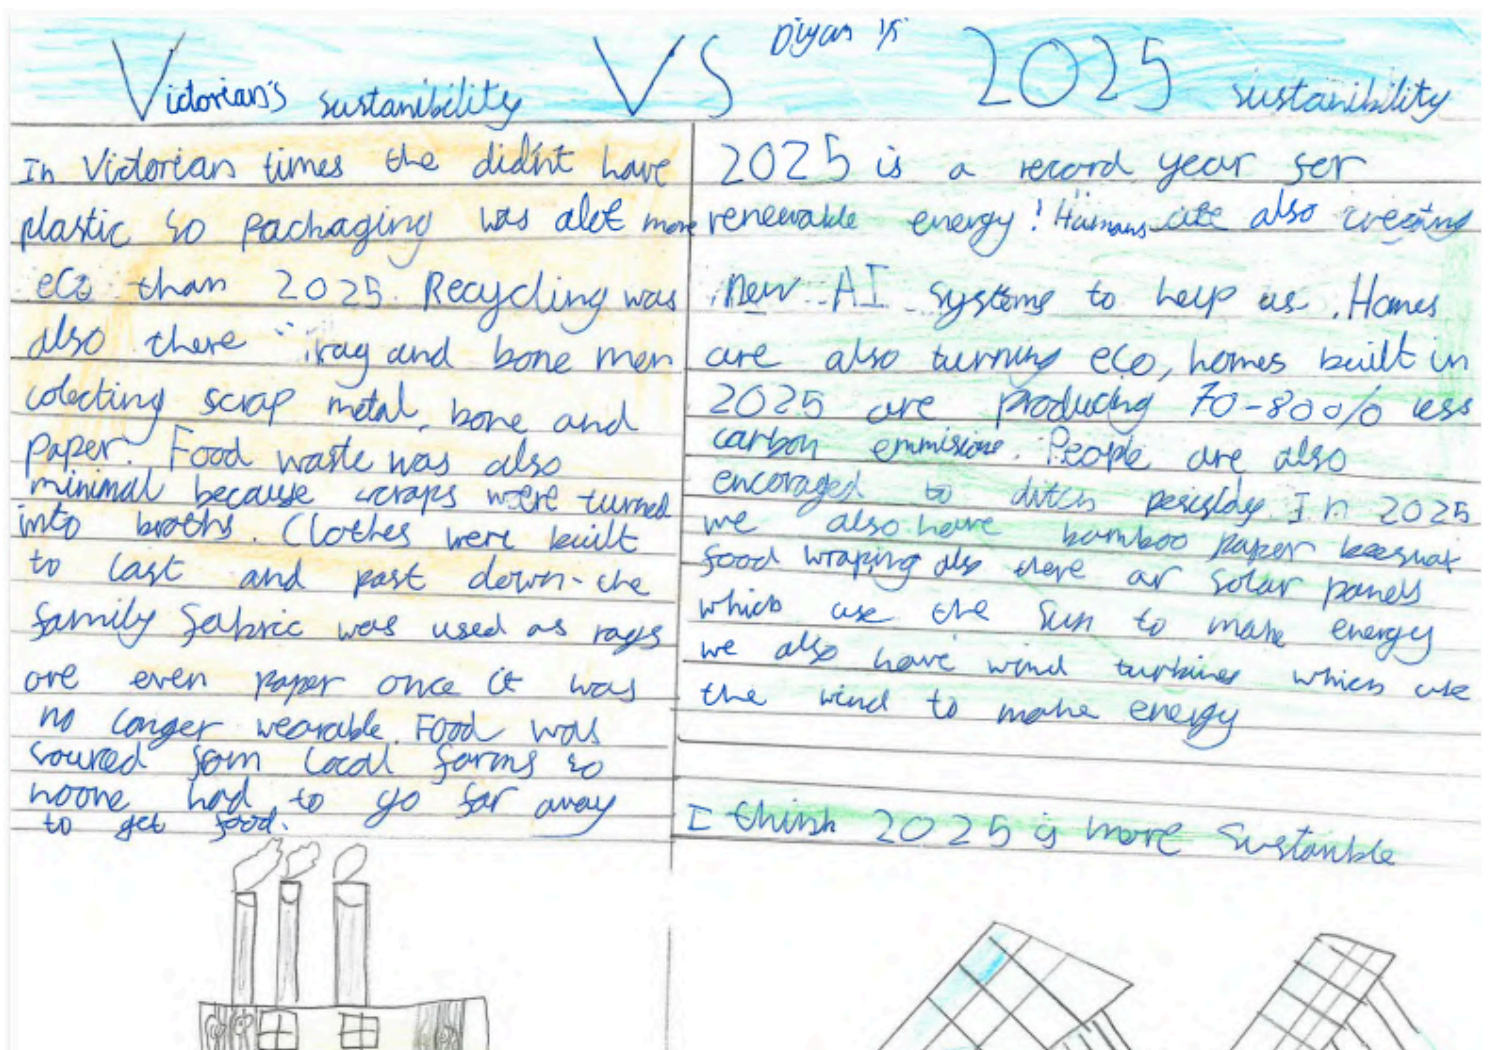 Diyan
Victorian's sustanibility VS 2025 sustanibility
In Victorian times the didn't have
plastic so packaging was alot more
eco than 2025. Recycling was
also there " rag and bone men
colecting scrap metal, bone and
paper. Food waste was also
minimal because scraps were turned
into broths. Clothes were built
to last and past down the
family fabric was used as rags
ore even paper once it was
no longer wearable. Food was
sourced fom local farms so
noone had to go far away
to get food.
2025 is a record year for
renewable energy! Humans are also creating
new AI systems to help us. Homes
are also turning eco, homes built in
2025 are producing 70-80% less
carbon emmisions. People are also
encoraged to ditch In 2025
we also have bamboo paper beeswax
food wraping also there ar solar panels
which use the sun to make energy
we also have wind turbines which use
the wind to make energy
I think 2025 is more Sustanible